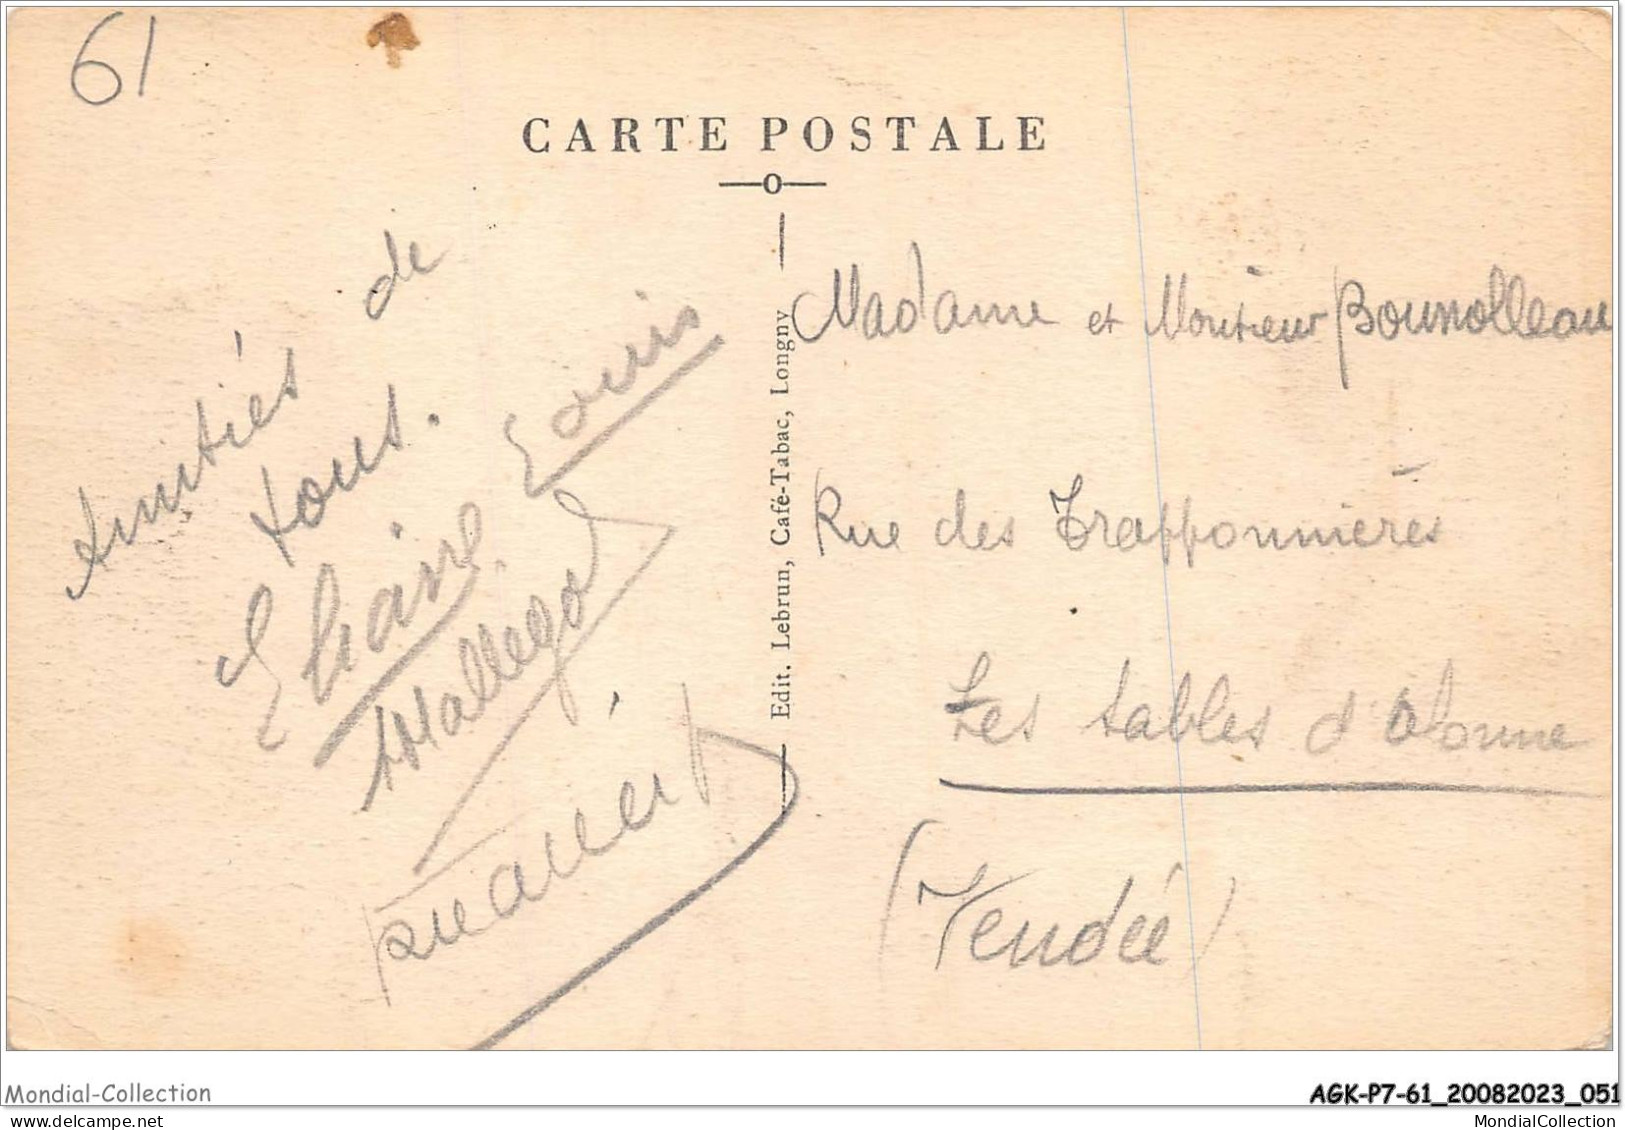 61
CARTE POSTALE
Amitiés de
tous.
Eliane Louis
Edit. Lebrun, Café-Tabac, Longny
Madame et Monsieur
Rue des Trapponnières
Les Sables d'Olonne
(Vendée)
Mondial-Collection
AGK-P7-61_20082023_051
MondialCollection